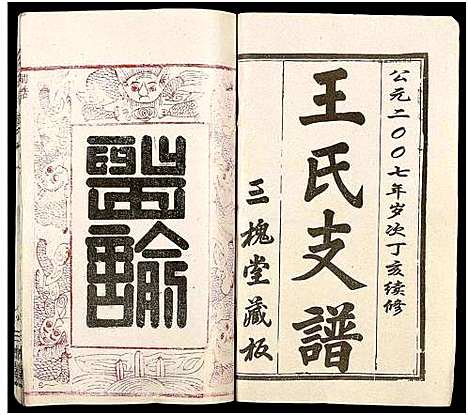 公元二〇〇七年岁次丁亥续修
王氏支譜
三槐堂藏板